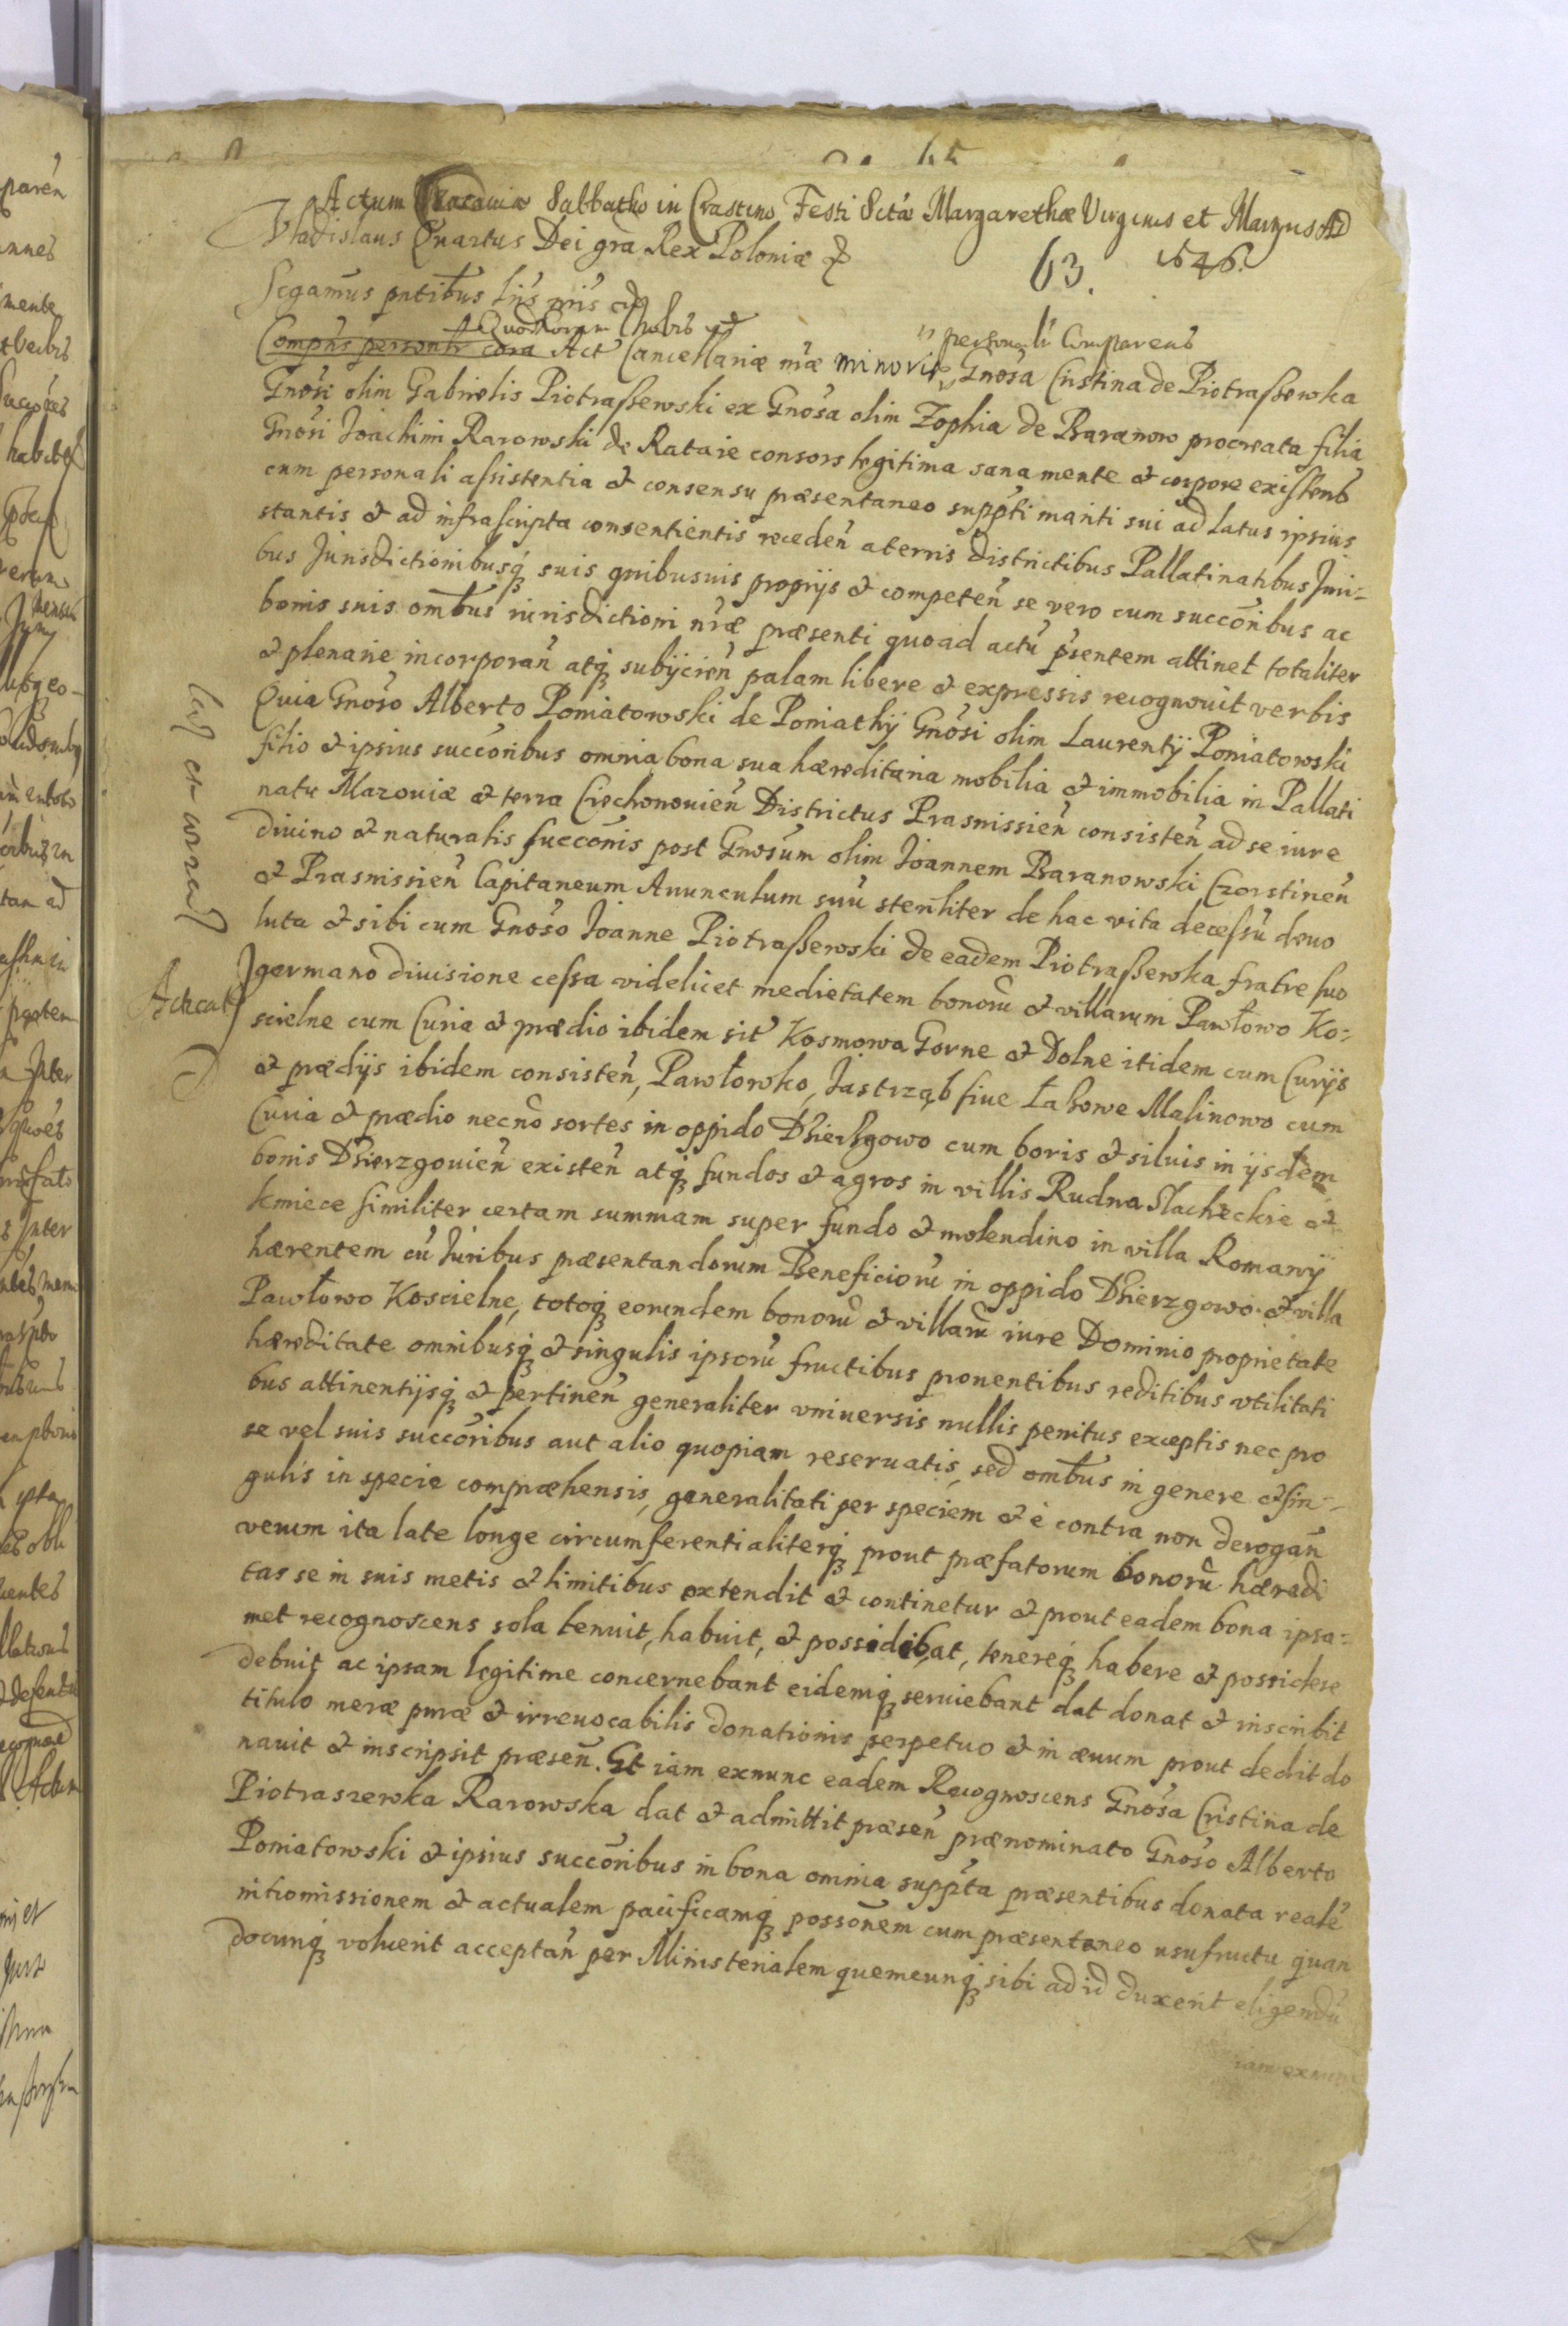 Actum Cracoviæ Sabbatho in Crastino Festi Sctæ Margarethæ Virginis et Martyris AD
1646.
Vladislaus Quartus Dei gra Rex Poloniæ &
63.
Sigamus pntibus lris nris
Quod Coram Nobis et
personali Comparens
Compns personlr cora Act Cancellariæ nræ minoris Gnosa Cristina de Piotrassewka
Gnosi olim Gabrielis Piotrassewski ex Gnosa olim Zophia de Baranow procreata filia
Gnosi Joachimi Rarowski de Rataie consors legitima sana mente & corpore existens
cum personali assistentia & consensu præsentaneo suppti mariti sui ad latus ipsius
stantis & ad infrascripta consentientis receden a terris districtibus Pallatinatibus Juri-
bus Jurisdictionibusq suis quibusuis proprijs & competen se vero cum succoribus ac
bonis suis ombus iurisdictioni nræ præsenti quoad actu psentem attinet totaliter
& plenarie incorporan atq subijcien palam libere & expressis recognouit verbis
Quia Gnoso Alberto Poniatowski de Poniathÿ Gnosi olim Laurentÿ Poniatowski
filio & ipsius succoribus omnia bona sua hæreditaria mobilia & immobilia in Pallati
natu Mazouiæ & terra Ciechonouien Districtus Prasnissien consisten ad se iure
diuino & naturalis succonis post Gnosum olim Joannem Baranowski Czorstinen
& Prasnissien Capitaneum Auunculum suu steriliter de hac vita decessu deuo
luta & sibi cum Gnoso Joanne Piotrassewski de eadem Piotrassewka fratre suo
germano diuisione cessa videlicet medietatem bonoru & villarum Pawłowo Ko-
scielne cum Curia & prædio ibidem sit Kosmowa Gorne & Dolne itidem cum Curijs
& prædijs ibidem consisten, Pawłowko, Jastrząb siue Łahowe Malinowo cum
Curia & prædio necno sortes in oppido Dhierhgowo cum boris & siluis in ijsdem
bonis Dhierzgouien existen atq fundos & agros in villis Rudna Slacheckie &
kmiece similiter certam summam super fundo & molendino in villa Romanÿ
hærentem cu Juribus præsentandorum Beneficioru in oppido Dhierzgowo & villa
Pawłowo Koscielne, totoq eorundem bonoru & villaru iure Dominio proprietate
hæreditate omnibusq & singulis ipsoru fructibus prouentibus reditibus vtilitati
bus attinentijsq & pertinen generaliter vniuersis nullis penitus exceptis nec pro
se vel suis succoribus aut alio quopiam reseruatis, sed ombus in genere & sin-
gulis in specie compræhensis, generalitati per speciem & è contra non derogan
verum ita late longe circumferentialiterq prout præfatorum bonoru hæredi
tas se in suis metis & limitibus extendit & continetur & prout eadem bona ipsa-
met recognoscens sola tenuit, habuit, & possidebat, tenereq habere & possidere
debuit ac ipsam legitime concernebant eidemq seruiebant dat donat & inscribit
titulo meræ puræ & irreuocabilis donationis perpetuo & in æuum prout dedit do
nauit & inscripsit præsen. Et iam exnunc eadem Recognoscens Gnosa Cristina de
Piotraszewka Rarowska dat & admittit præsen prænominato Gnoso Alberto
Poniatowski & ipsius succoribus in bona omnia suppta præsentibus donata reale
intromissionem & actualem pacificamq possonem cum præsentaneo usufructu quan
documq voluerit acceptan per Ministerialem quemcunq sibi ad id duxerit eligendu
iam exnunc